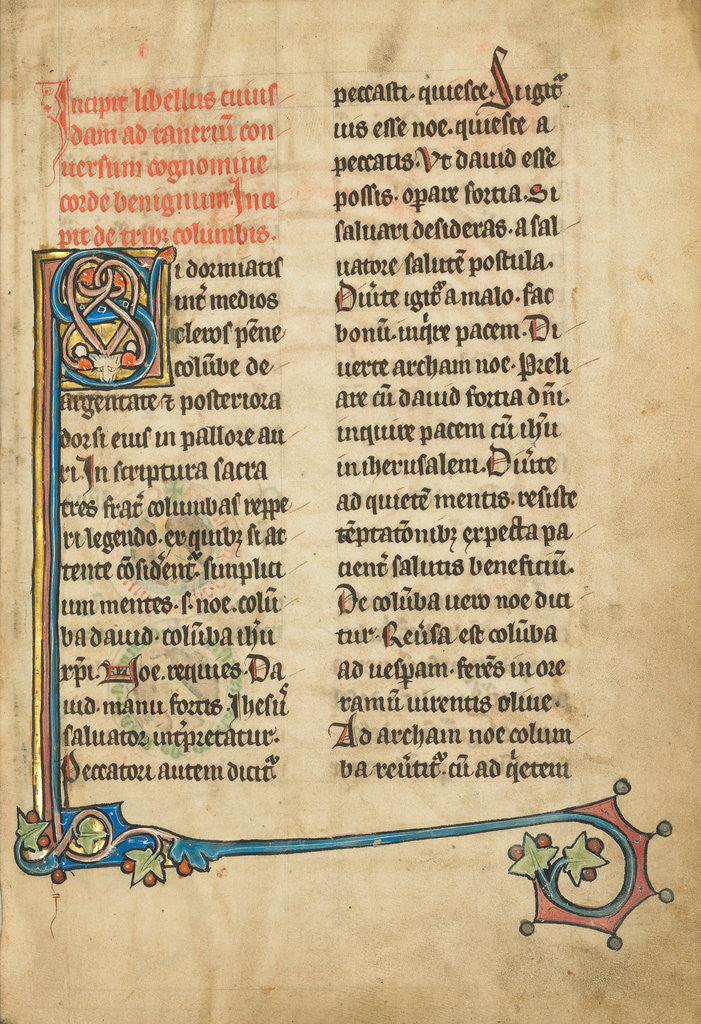 Incipit libellus cuius
dam ad raneriū con
uersum cognomine
corde benignum. Inci
pit de tribꝫ columbis.
Si dormiatis
int̛ medios
cleros pēne
colūbe de
argentate ⁊ posteriora
dorsi eius in pallore au
ri. In scriptura sacra
tres frat̛ columbas reppe
ri legendo. ex quibꝫ si at
tente cōsid̛ent᷑ simplici
um mentes .s. noe. colū
ba dauid. colūba ih̄u
xp̄i. Noe. requies. Da
uid. manu fortis. Ihesu᷑
saluator int̛pretatur.
Peccatori autem dicit᷑
peccasti. quiesce. Si igit᷑
uis esse noe. quiesce a
peccatis. Vt dauid esse
possis. oꝑare fortia. Si
saluari desideras. a sal
uatore salutē postula.
Diưte igit᷑ a malo. fac
bonū. inq̛re pacem. Di
uerte archam noe. Preli
are cū dauid fortia dn̄i.
inquire pacem cū ih̄u
in iherusalem. Diưte
ad quietē mentis. resiste
tēptatōnibꝫ expecta pa
cient̛ salutis beneficiū.
De colūba uero noe dici
tur. Reưsa est colūba
ad uesꝑam. ferēs in ore
ramū uirentis oliue.
Ad archam noe colum
ba reưtit᷑. cū ad q̛etem